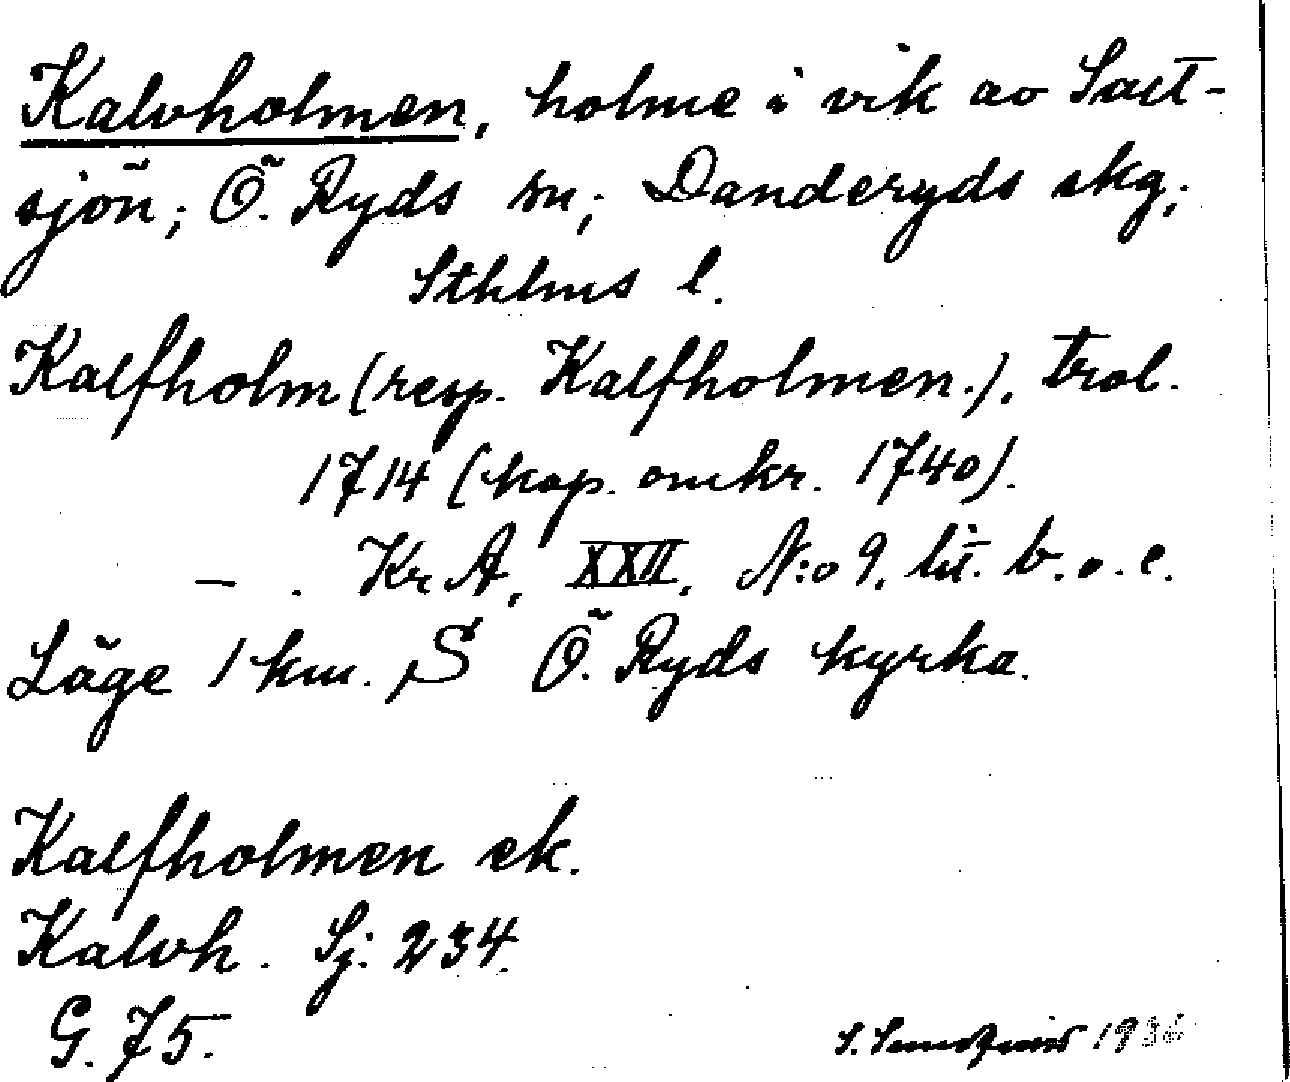 Kalvholmen, holme i vik av Salt-
sjön; Ö. Ryds sn; Danderyds skg;
Sthlms l.
Kalfholm (resp. Kalfholmen.), trol.
1714 (kop. omkr. 1740).
— . KrA, XXII, N:o 9, lit. b. o. c.
Läge 1 km. S Ö. Ryds kyrka.
Kalfholmen ek.
Kalvh. Sj: 234.
G. 75.
S. 1936